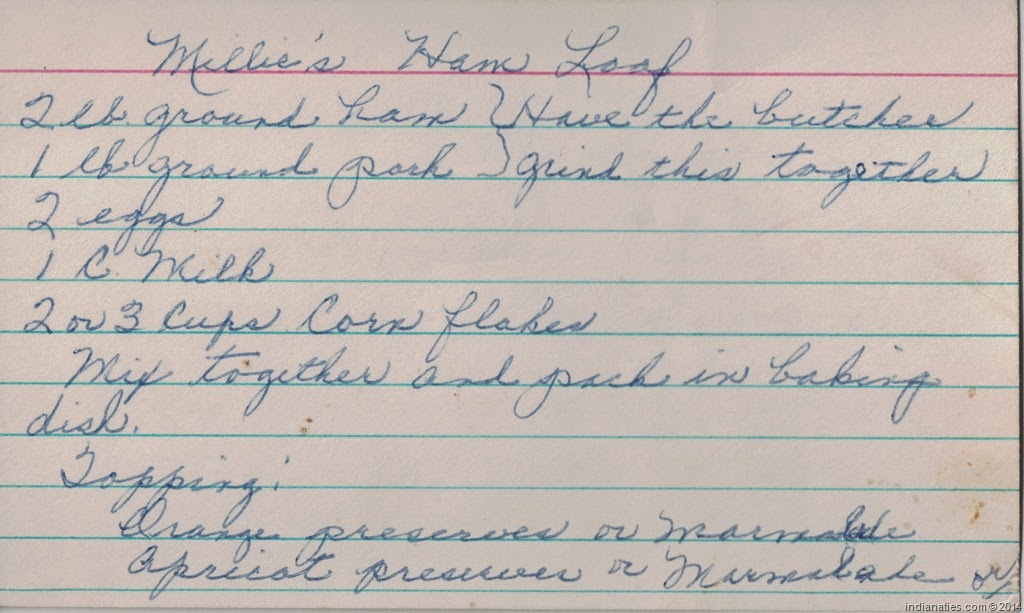 Millie's Ham Loaf
2 lb ground ham } Have the butcher
1 lb ground pork } grind this together
2 eggs
1 C. Milk
2 or 3 Cups Corn flakes
Mix together and pack in baking
dish.
Topping:
Orange preserves or marmalade
Apricot preserves or Marmalade or
indianaties.com©2014